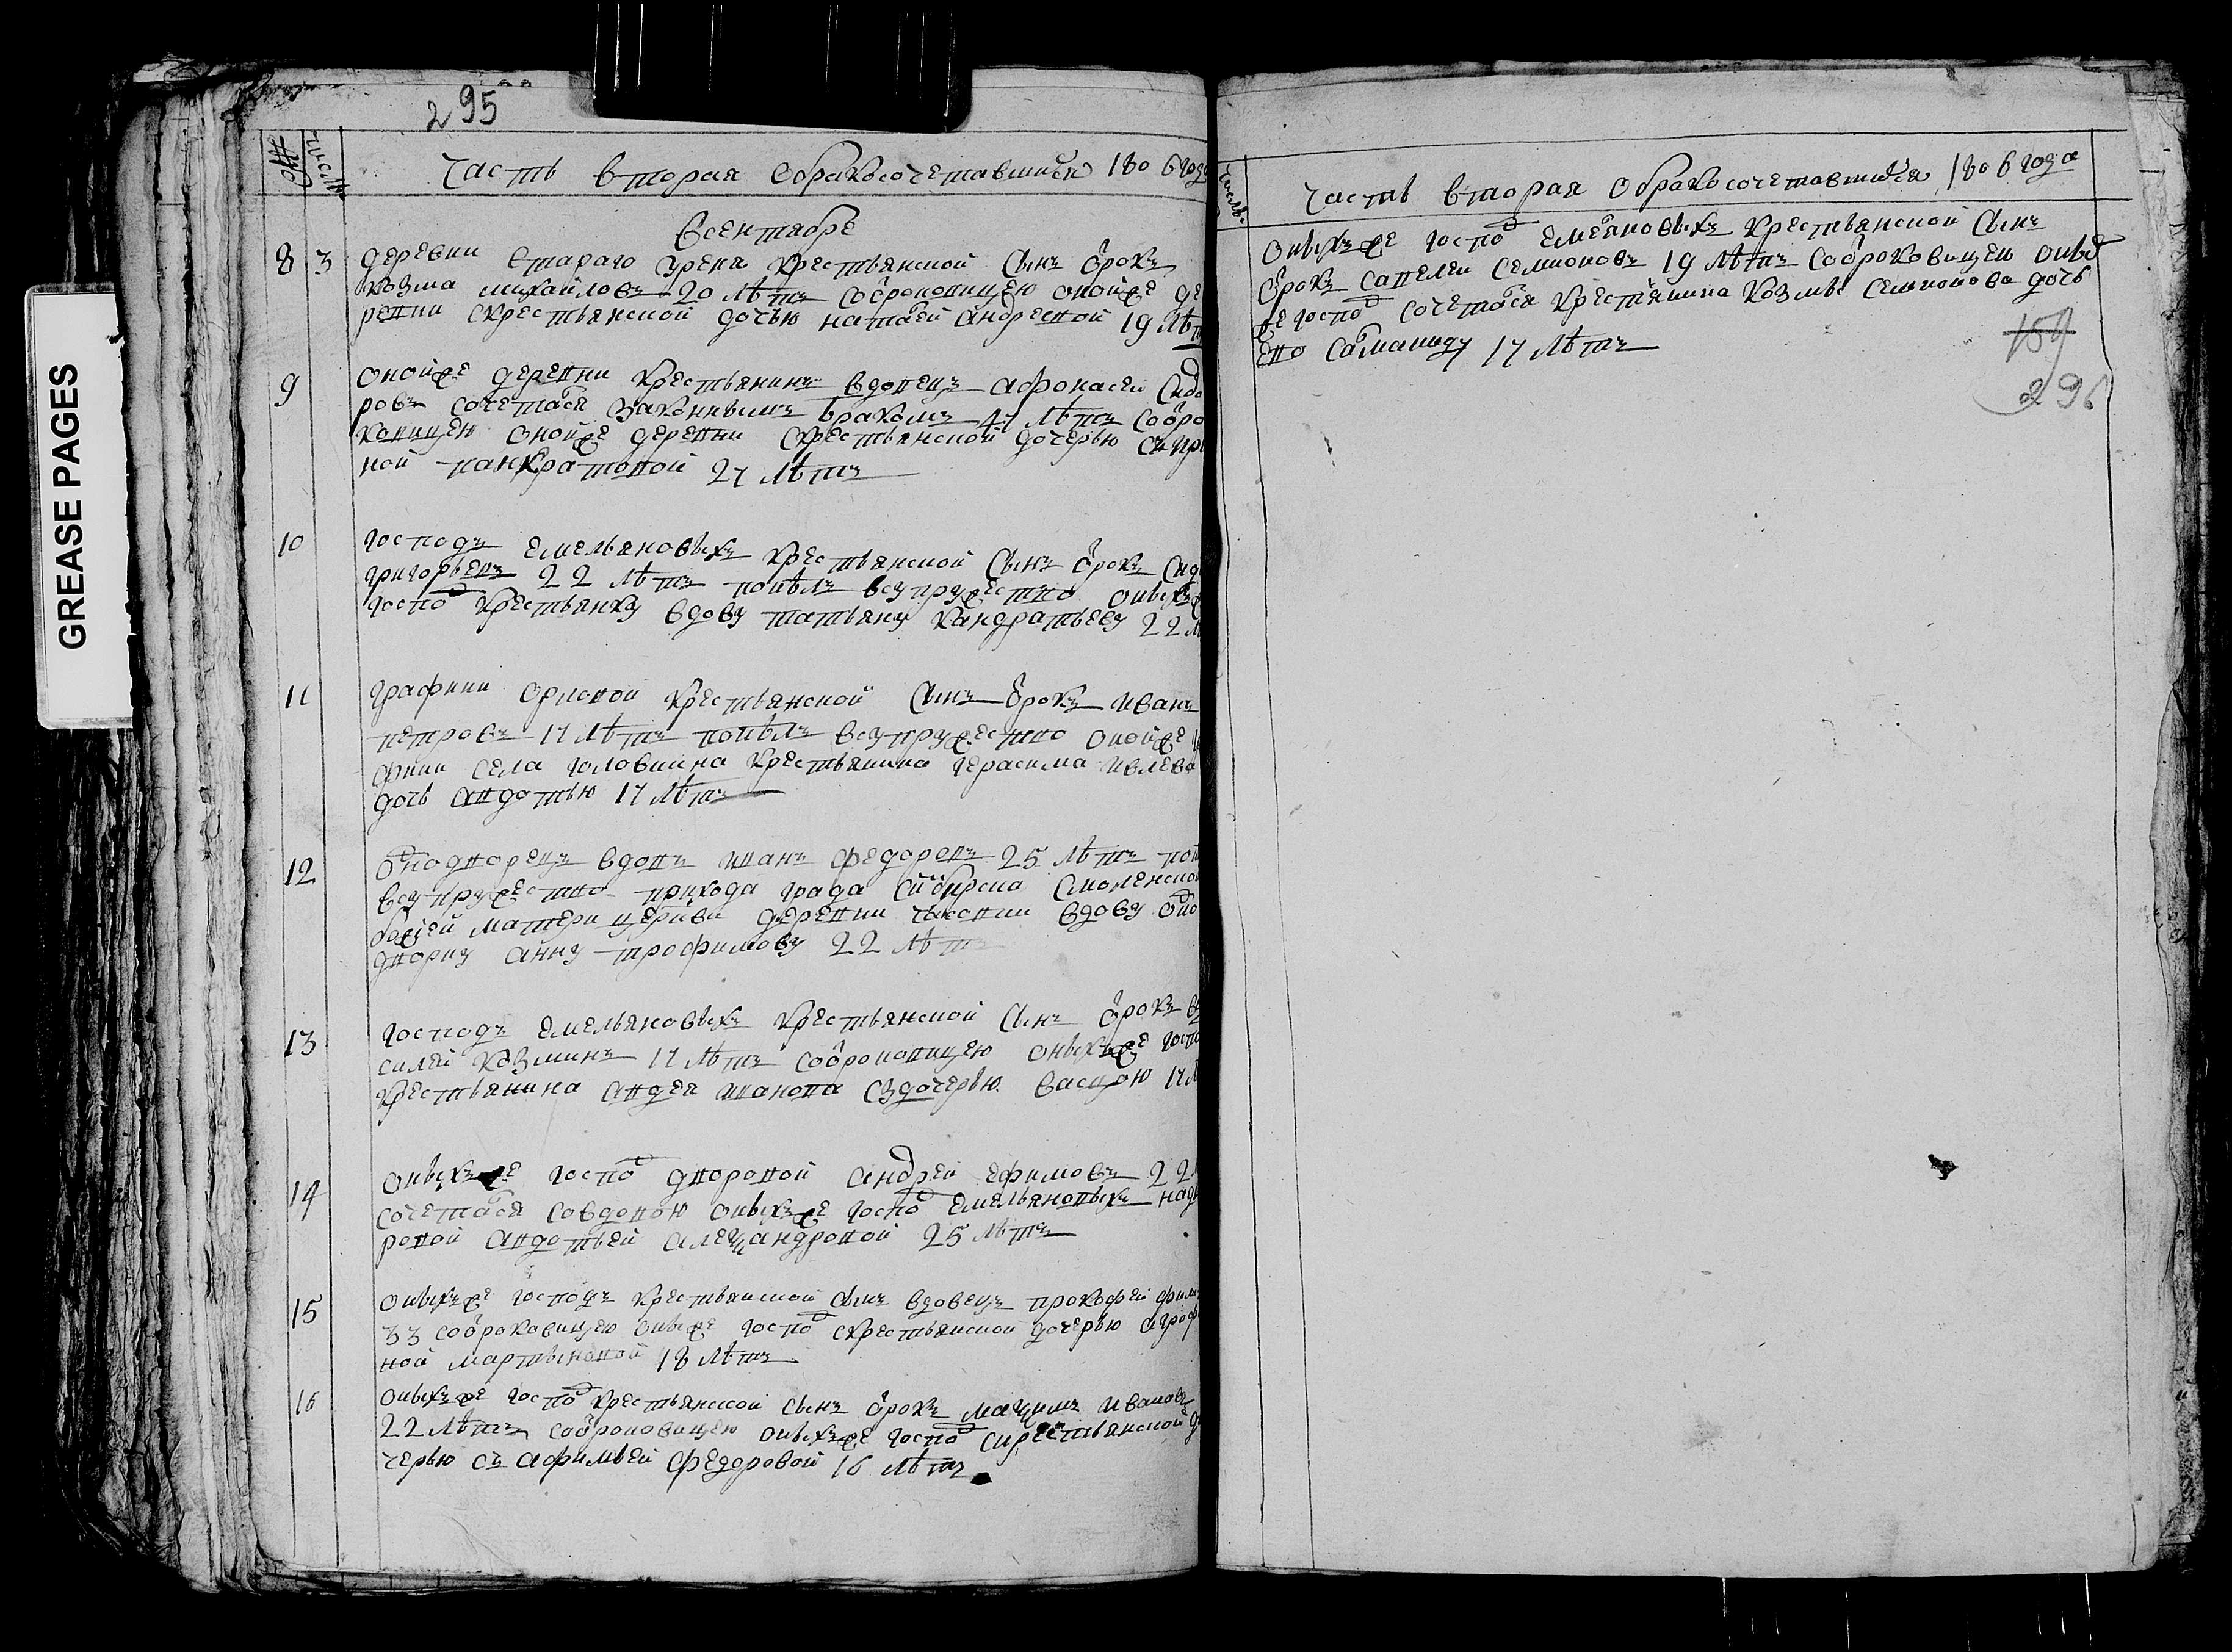 GREASE PAGES
295
№
числа
Часть вторая обракосочетавшихся 1806 года
Всентябре
8 3 деревни Стараго Урена крестьянской сынъ отрокъ
козма михайловъ 20 летъ сотроковицею онойже де
ревни скрестьянской дочью натальей андревой 19 лет
9 онойже деревни крестьянинъ вдовецъ афонасеи Сидо
ровъ сочетался законнымъ бракомъ 47 летъ сотро
ковицею онойже деревни скрестьянской дочерью
ной панкратовой 27 летъ
10 господъ емельяновыхъ крестьянской сынъ отрокъ
григорьевъ 22 летъ поялъ всупружество оныхъ
госпо крестьянку вдову татьяну кандратьеву 22
11 графини орловой крестьянской сынъ отрокъ иванъ
петровъ 17 летъ поялъ всупружество онойже
фини села головкина крестьянина герасима ивлева
дочь авдотью 17 летъ
12 однодворецъ вдовъ иванъ федоровъ 25 летъ
всупружество прихода града Синбирска Смоленской
божей матери церкви деревни вдову одно
дворку анну трофимову 22 летъ
13 господъ емельяновыхъ крестьянской сынъ отрокъ ва
силей козминъ 17 летъ сотроковицею оныхъже госпо
крестьянина авдея иванова сздочерью 17
14 оныхъже госпо дворовой андрей ефимовъ 22
сочетался совдовою оныхъже госпо емельяновыхъ
ровой авдотьей александровой 25 летъ
15 оныхъже господъ крестьянской сынъ вдовецъ прокофей
33 сотроковицею оныхже госпо скрестьянской дочерью
ной мартыновой 18 летъ
16 оныхъже госпо крестьянской сынъ отрокъ мадимъ ивановъ
22 летъ сотроковицею оныхъже госпо скрестьянской до
черью съ афимьей федоровой 16 летъ
числа
Часть вторая обракосочетавшихся 1806 года
оныхъже госпо емеляновыхъ крестьянской сынъ
отрокъ савелеи семионовъ 19 летъ сотроковицею оных
же госпо сочетался крестьянина козмы семионова дочь
ево саманиду 17 летъ
159
296